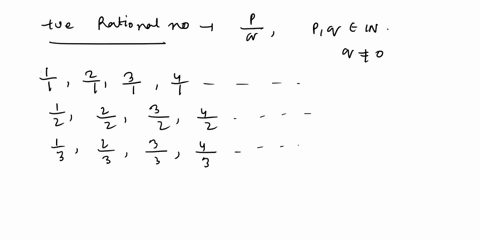 +ve Rational no → p/q, p, q ∈ IN.
q ≠ 0
1/1, 2/1, 3/1, 4/1 - - - - -
1/2, 2/2, 3/2, 4/2 - - - - -
1/3, 2/3, 3/3, 4/3 - - - - -